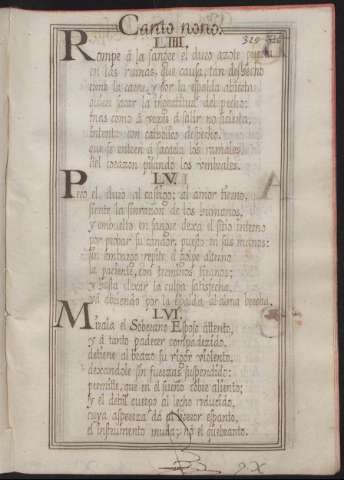 Canto nono.
LIIII.
Rompe â la sangre el duro azote puerta
en las ruinas, que causa, tan deshecho
como la carne, y por la espalda abierta
quiere sacar la ingratitud del pecho:
mas como â vezes â salir no acierta,
intenta con catholico despecho,
que se entren â sacarla los ramales
del corazon pisando los umbrales.
LV.
Pero el, duro al castigo; al amor tierno,
siente la sinrazon de los humanos,
y embuelto en sangre dexa el sitio interno
por probar su candor, puesto en sus manos:
sin embargo repite el golpe alterno
la paciente, con terminos tiranos;
y hasta dexar la culpa satisfecha,
va abriendo por la espalda al alma brecha.
LVI.
Mirala el Soberano Esposo attento,
y â tanto padecer compadezido,
detiene al brazo su rigor violento,
dexandole sin fuerzas suspendido:
permite, que en el sueño cobre aliento;
y el debil cuerpo al lecho reducido,
cuya aspereza dâ al horror espanto,
el instrumento muda; no el quebranto.